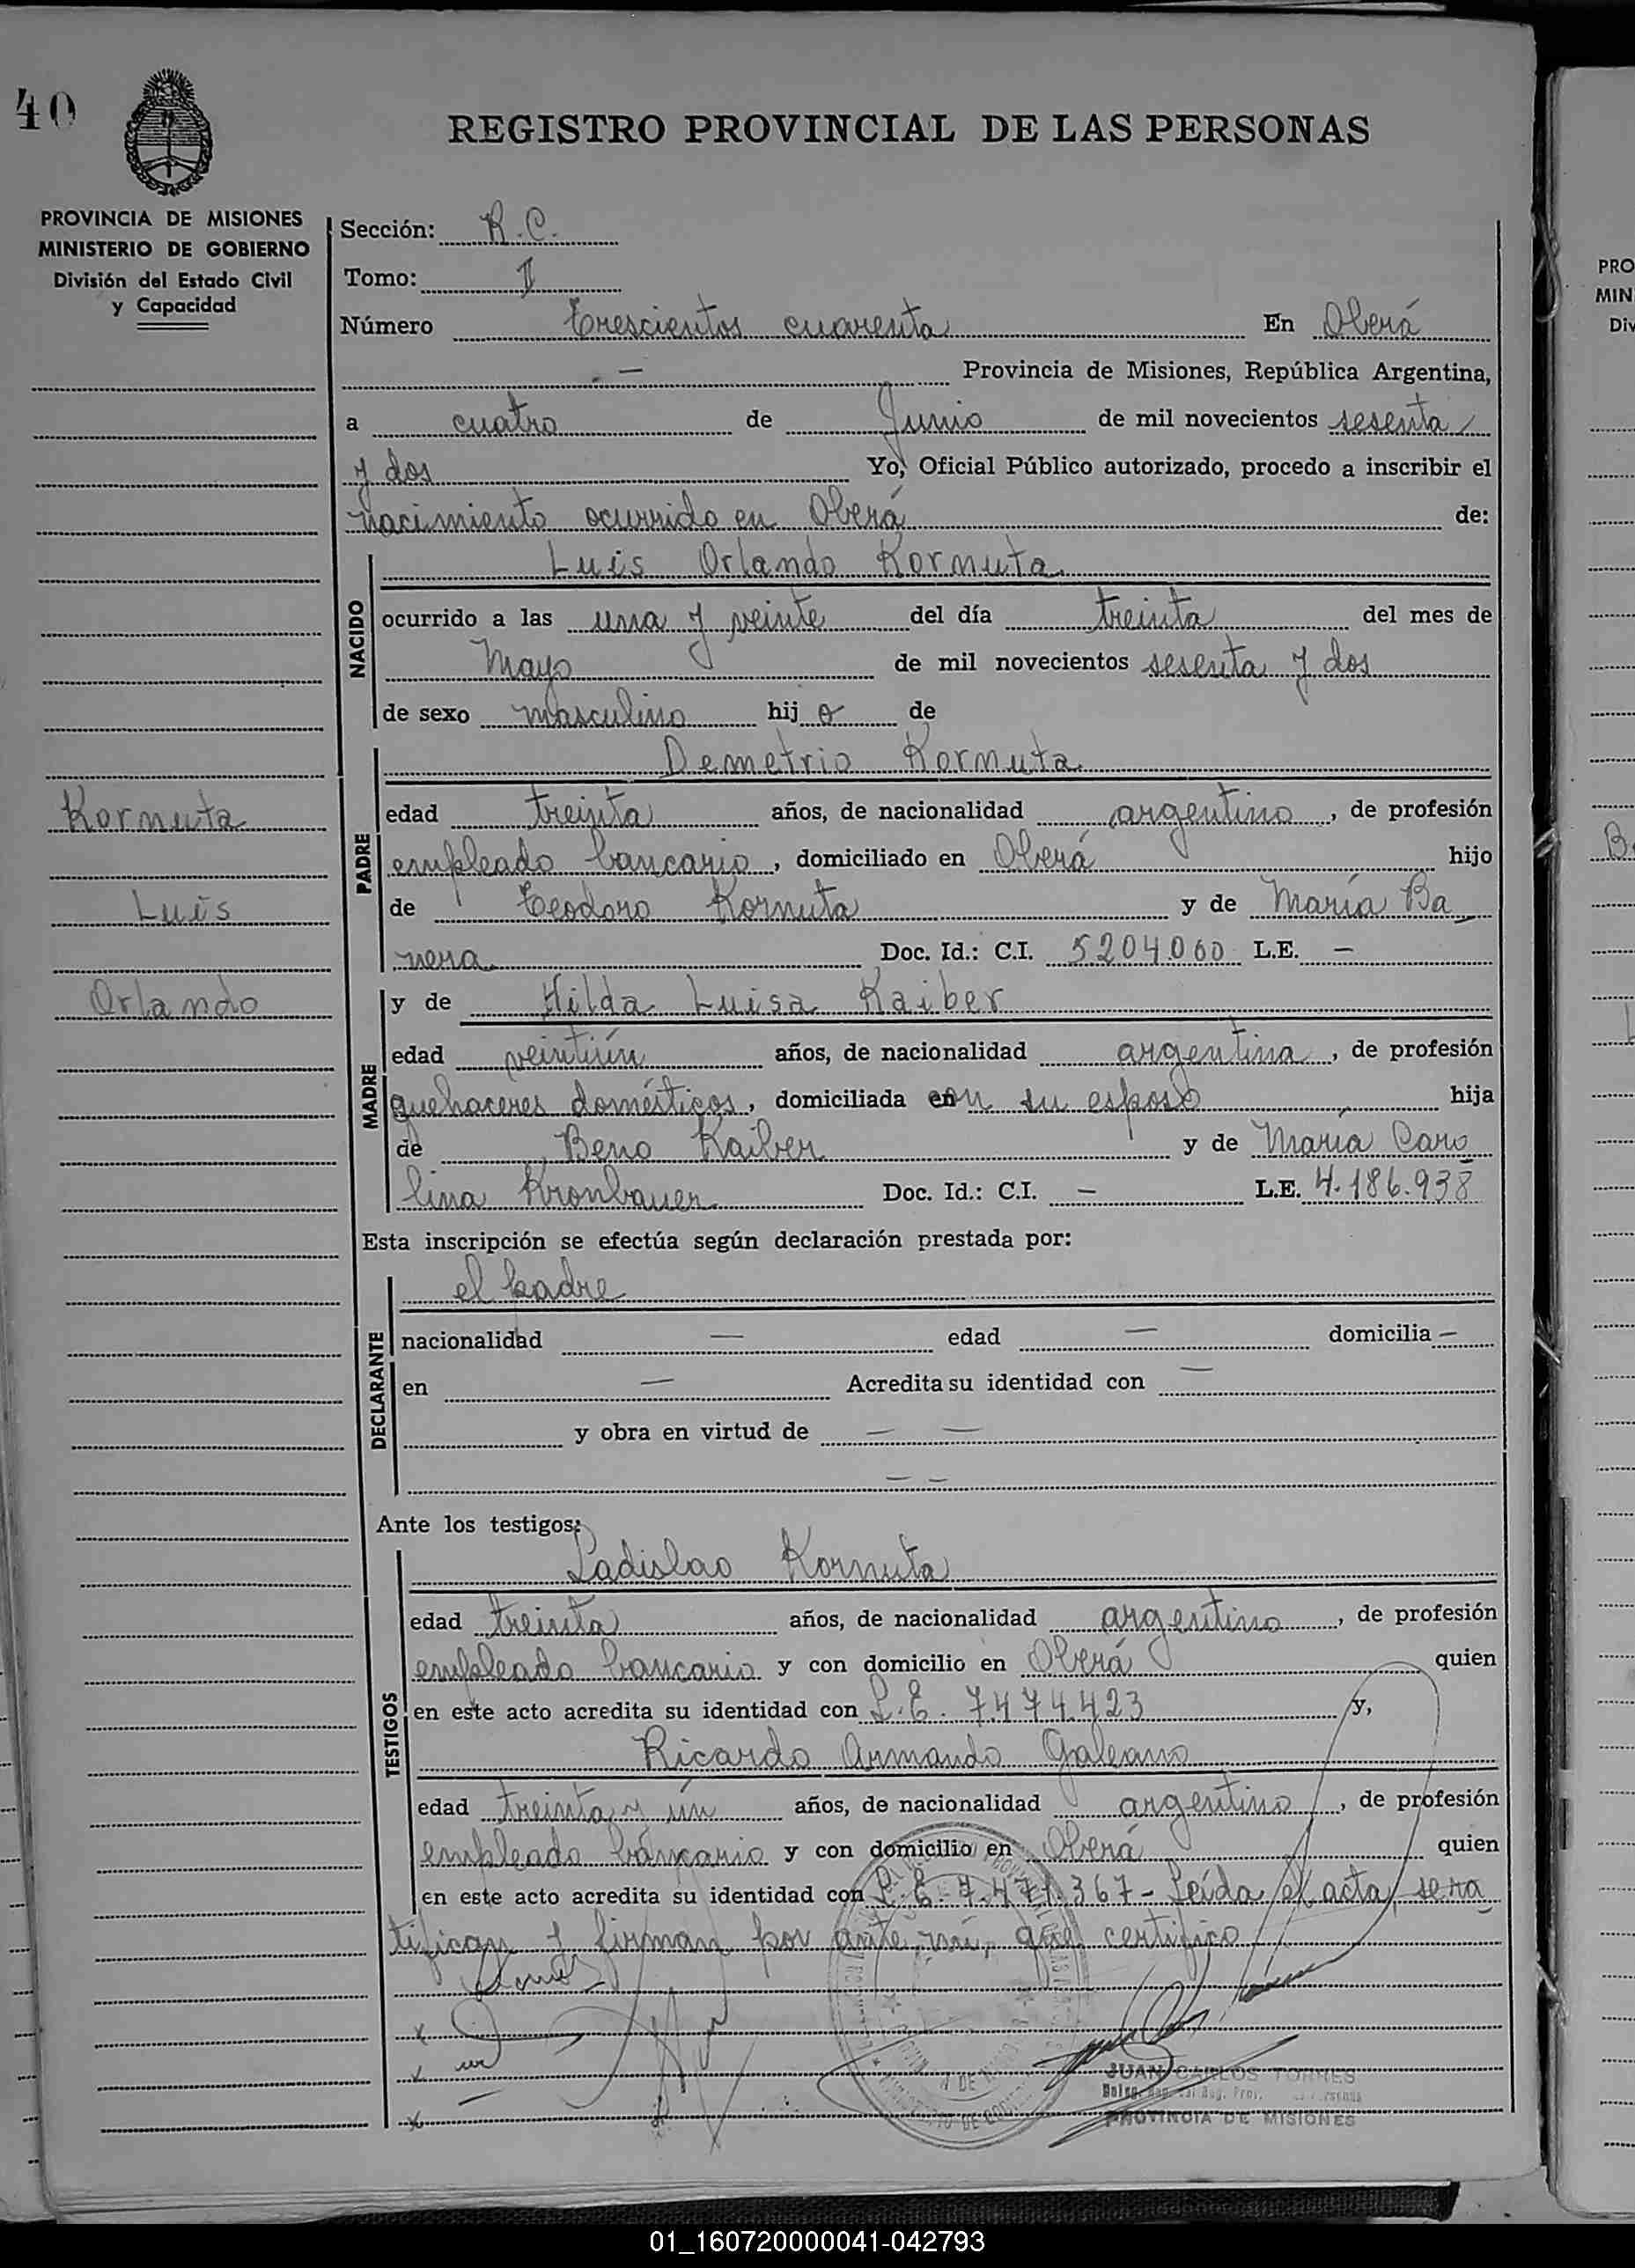 40
REGISTRO PROVINCIAL DE LAS PERSONAS
PROVINCIA DE MISIONES
MINISTERIO DE GOBIERNO
División del Estado Civil
y Capacidad
Sección: R.C.
Tomo: II
Número Trescientos cuarenta En Oberá
— Provincia de Misiones, República Argentina,
a cuatro de Junio de mil novecientos sesenta
y dos Yo, Oficial Público autorizado, procedo a inscribir el
nacimiento ocurrido en Oberá de:
NACIDO
Luis Orlando Kornuta
ocurrido a las una y veinte del día treinta del mes de
Mayo de mil novecientos sesenta y dos
de sexo masculino hijo de
PADRE
Demetrio Kornuta
Kornuta
edad treinta años, de nacionalidad argentino, de profesión
empleado bancario, domiciliado en Oberá hijo
Luis
de Teodoro Kornuta y de María Ba
nera Doc. Id.: C.I. 5204060 L.E. —
Orlando
MADRE
y de Hilda Luisa Kaiber
edad veintiún años, de nacionalidad argentina, de profesión
quehaceres domésticos, domiciliada con su esposo hija
de Beno Kaiber y de María Caro
lina Kronbauer Doc. Id.: C.I. — L.E. 4.186.938
Esta inscripción se efectúa según declaración prestada por:
DECLARANTE
el padre
nacionalidad — edad — domicilia —
en — Acredita su identidad con —
y obra en virtud de — —
— —
Ante los testigos:
TESTIGOS
Ladislao Kornuta
edad treinta años, de nacionalidad argentino, de profesión
empleado bancario y con domicilio en Oberá quien
en este acto acredita su identidad con L.E. 7474.423 y,
Ricardo Armando Galeano
edad treinta y un años, de nacionalidad argentino, de profesión
empleado bancario y con domicilio en Oberá quien
en este acto acredita su identidad con L.E. 7.471.367- Leída el acta, se ra
tifican y firman por ante mí, que certifico
JUAN CARLOS TORRES
PROVINCIA DE MISIONES
PRO
MIN
Div
01_160720000041-042793